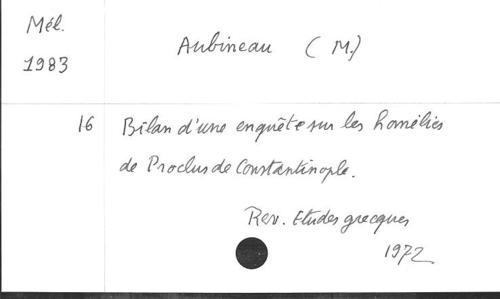 Mél.
1983
Aubineau (M.)
16
Bilan d'une enquête sur les homélies
de Proclus de Constantinople.
Rev. Etudes grecques
1972